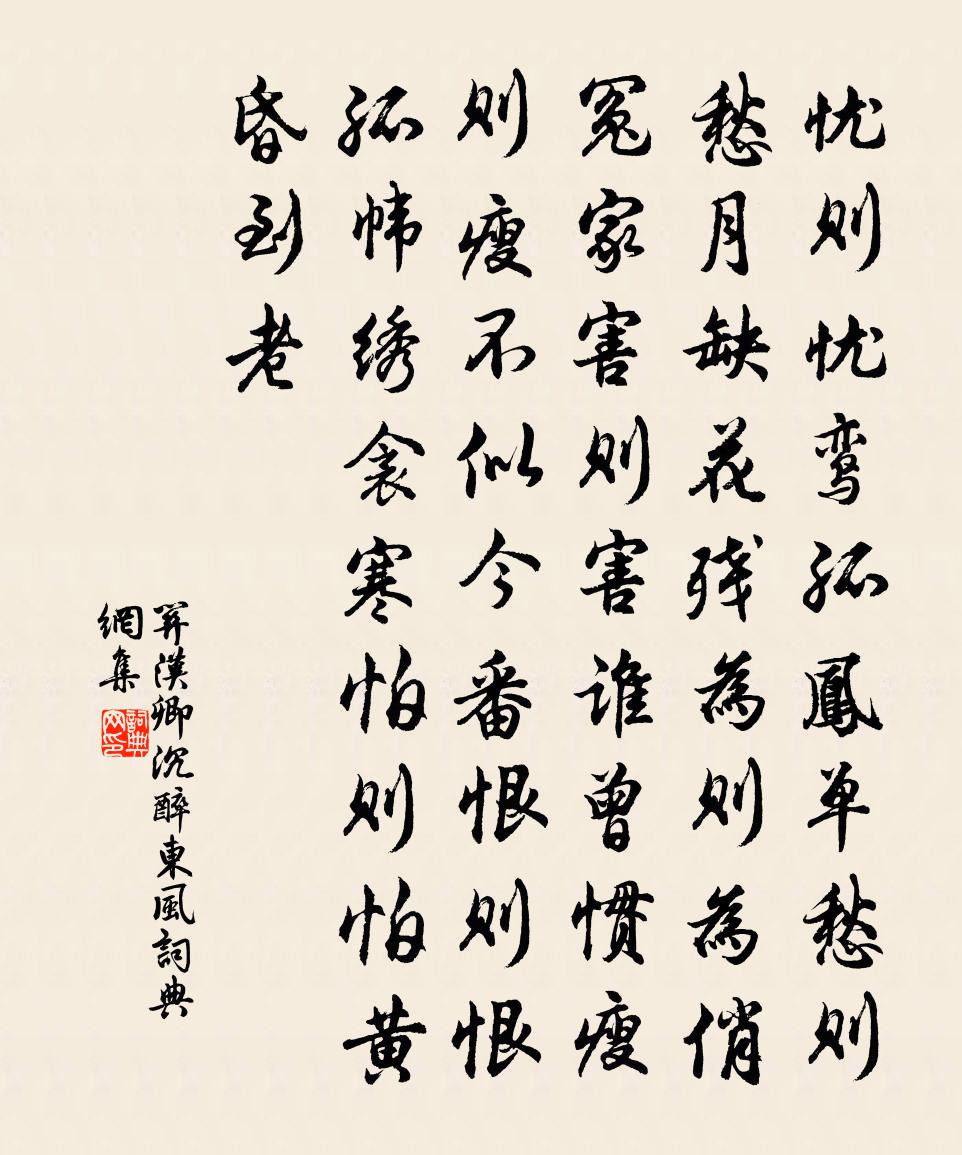 忧则忧鸾孤鳳单愁则
愁月缺花残為则為俏
冤家害则害谁曾惯瘦
则瘦不似今番恨则恨
孤帏绣衾寒怕则怕黄
昏到老
关漢卿沉醉東風詞典
網集
詞典
网印